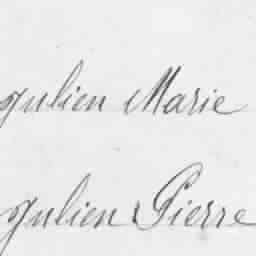 Julien Marie
Julien Pierre